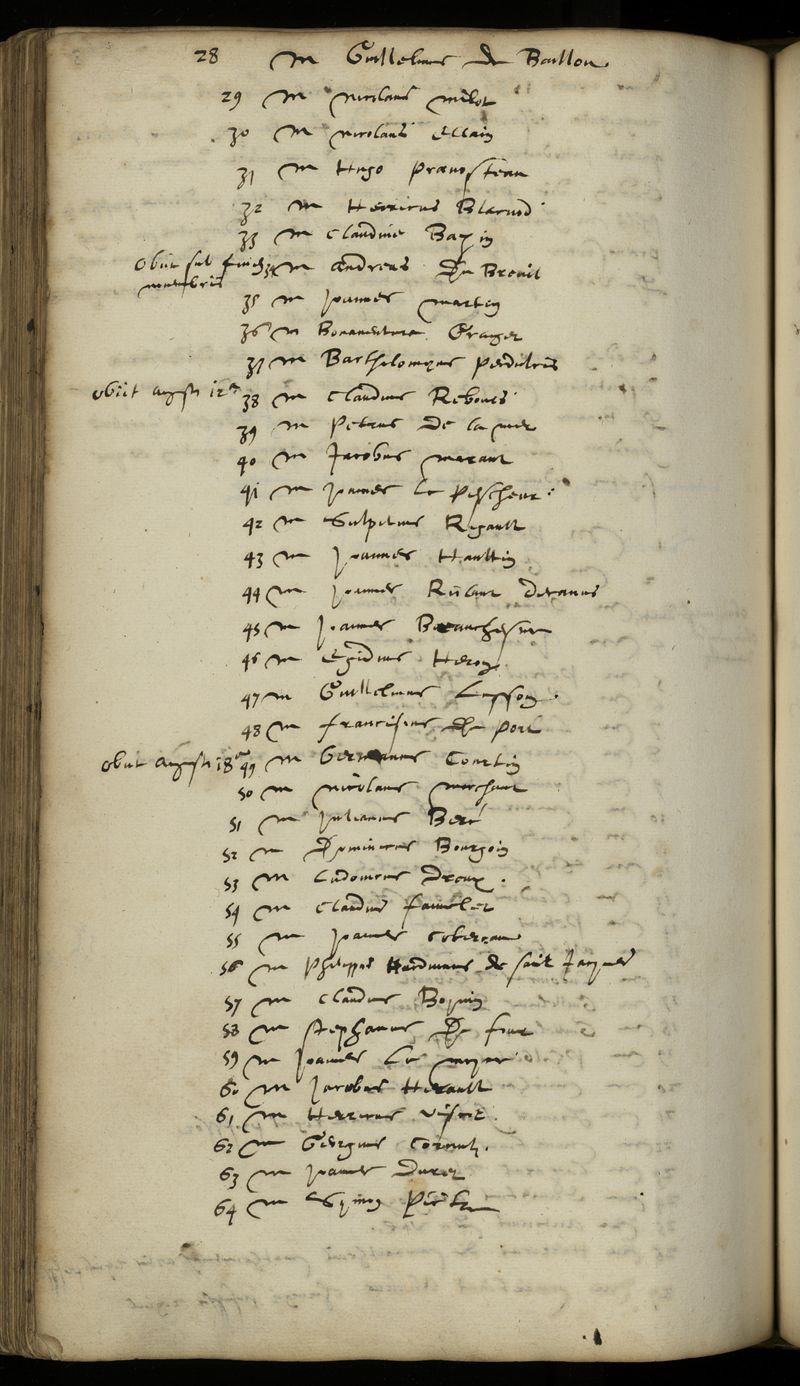 28 M Guillelmus de Baillou.
29 M Nicolaus Milot
30 M Nicolaus Ellain
31 M Hugo
32 M Henricus Blacuod
33 M Claudius Bazin
Obiit sub finem 34 M Andreas Du Breuil
35 M Joannes Martin
36 M Bonaventura Granger
37 M Bartholomæus Perdulcis
obiit Augusti 12a 38 M Claudius Rebours
39 M Petrus De la mer
40 M Jacobus Marant
41 M Joannes Le Pescheur
42 M Sulpitius Rigault
43 M Joannes Haultin
44 M Joannes Riolant decanus
45 M Joannes
46 M Egidius Heron
47 M Guillelmus Lusson.
48 M Franciscus de Port
obiit Augusti 18a 49 M Germanus Courtin
50 M Nicolaus Marchant
51 M Julianus
52 M Dominicus Bourgoin
53 M Ludovicus Dreux.
54 M Claudius
55 M Joannes
56 M Philippus Harduinus de Saint Jacques
57 M Claudius
58 M Stephanus Du four
59 M Joannes Le
60 M Jacobus Herault
61 M Henricus
62 M Georgius Cornuty.
63 M Joannes Duret
64 M Simon Piètre